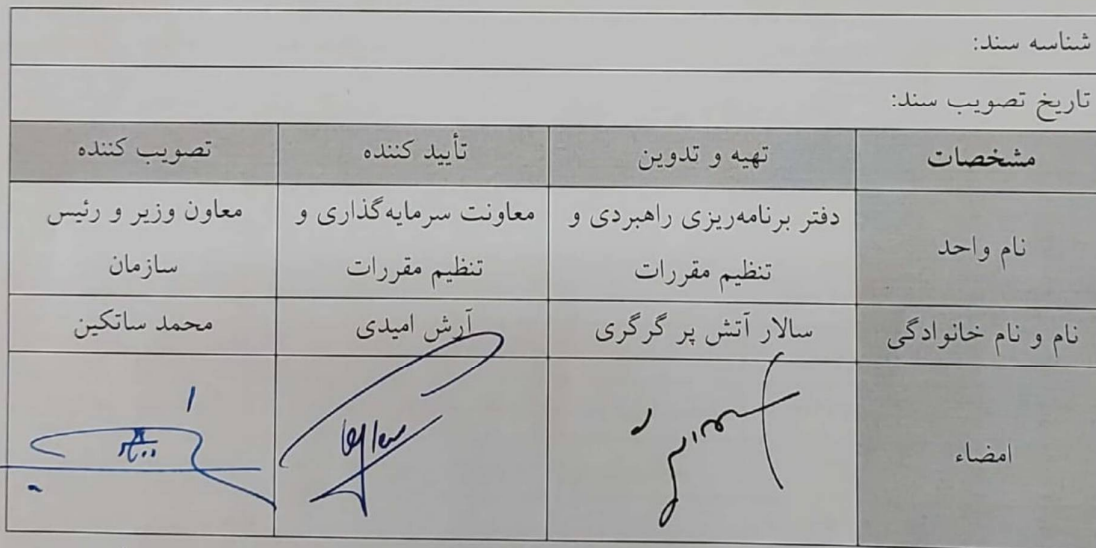 شناسه سند:
تاریخ تصویب سند:
مشخصات تهیه و تدوین تأیید کننده تصویب کننده
نام واحد
دفتر برنامه‌ریزی راهبردی و
تنظیم مقررات
معاونت سرمایه‌گذاری و
تنظیم مقررات
معاون وزیر و رئیس
سازمان
نام و نام خانوادگی سالار آتش پر گرگری آرش امیدی محمد ساتکین
امضاء